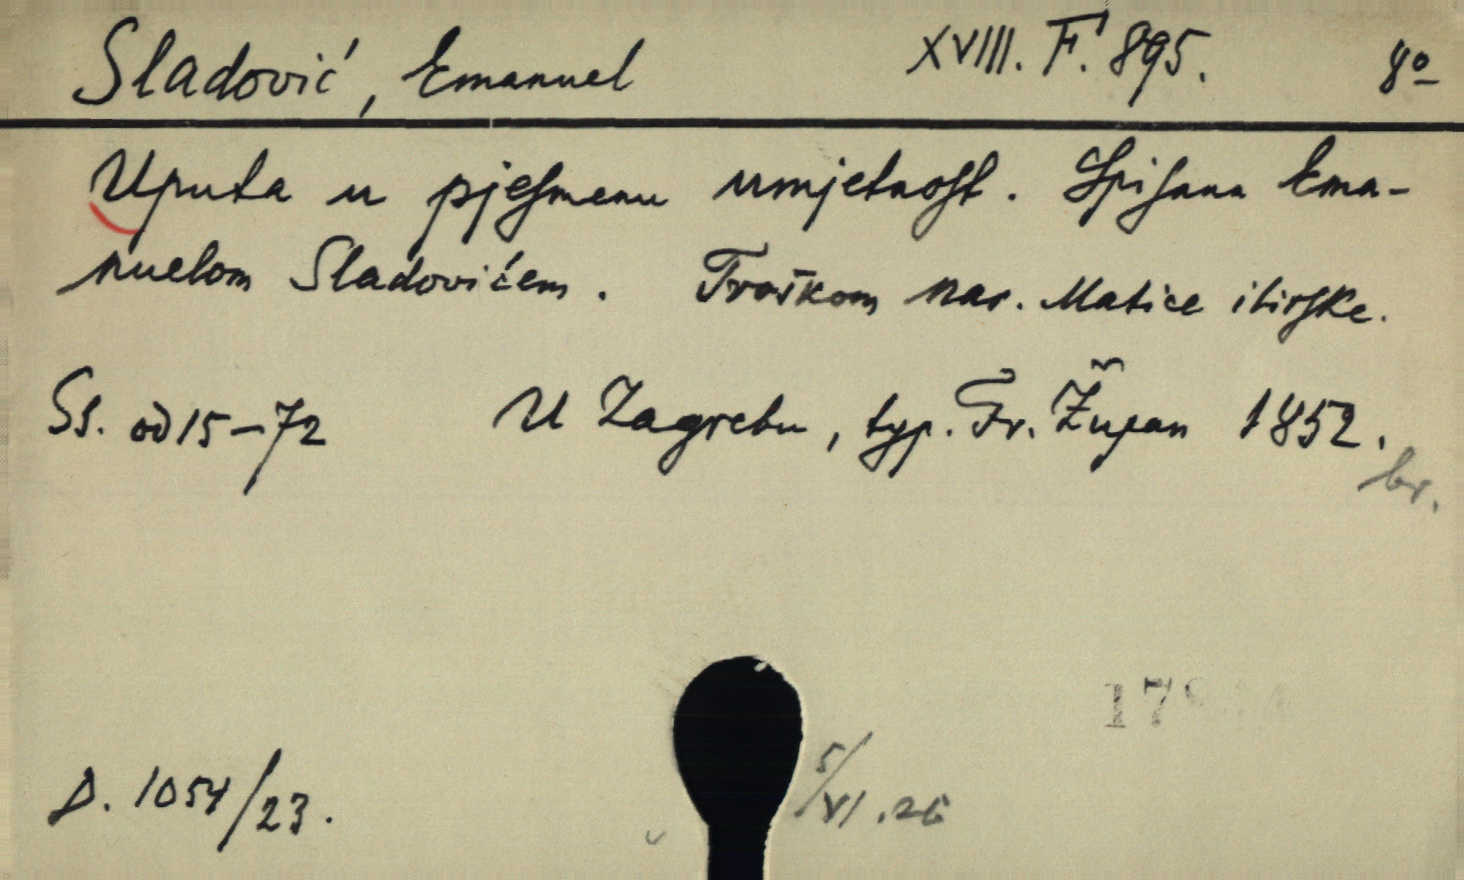 Sladović, Emanuel XVIII. F. 895. 8º
Uputa u pjesmenu umjetnost. Spisana Ema-
nuelom Sladovićem. Troškom nar. Matice ilirske.
Ss. od 15-72 U Zagrebu, typ. Fr. Župan 1852.
br.
D. 1054/23.
5/VI.26